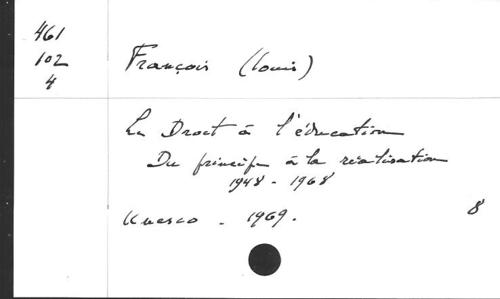 461
102
4
François (Louis)
Le Droit à l'éducation
Du principe à la réalisation
1948 - 1968
Unesco - 1969.
8